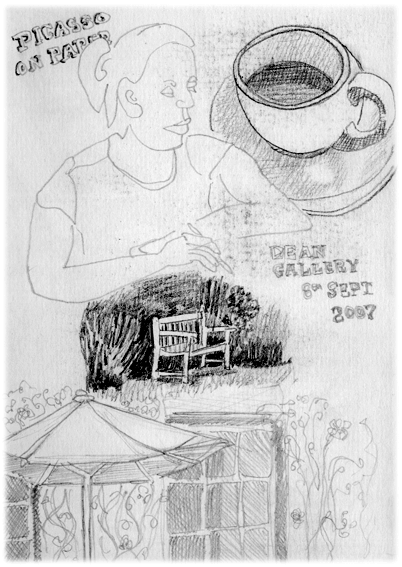 PICASSO
ON PAPER
DEAN
GALLERY
8TH SEPT
2007